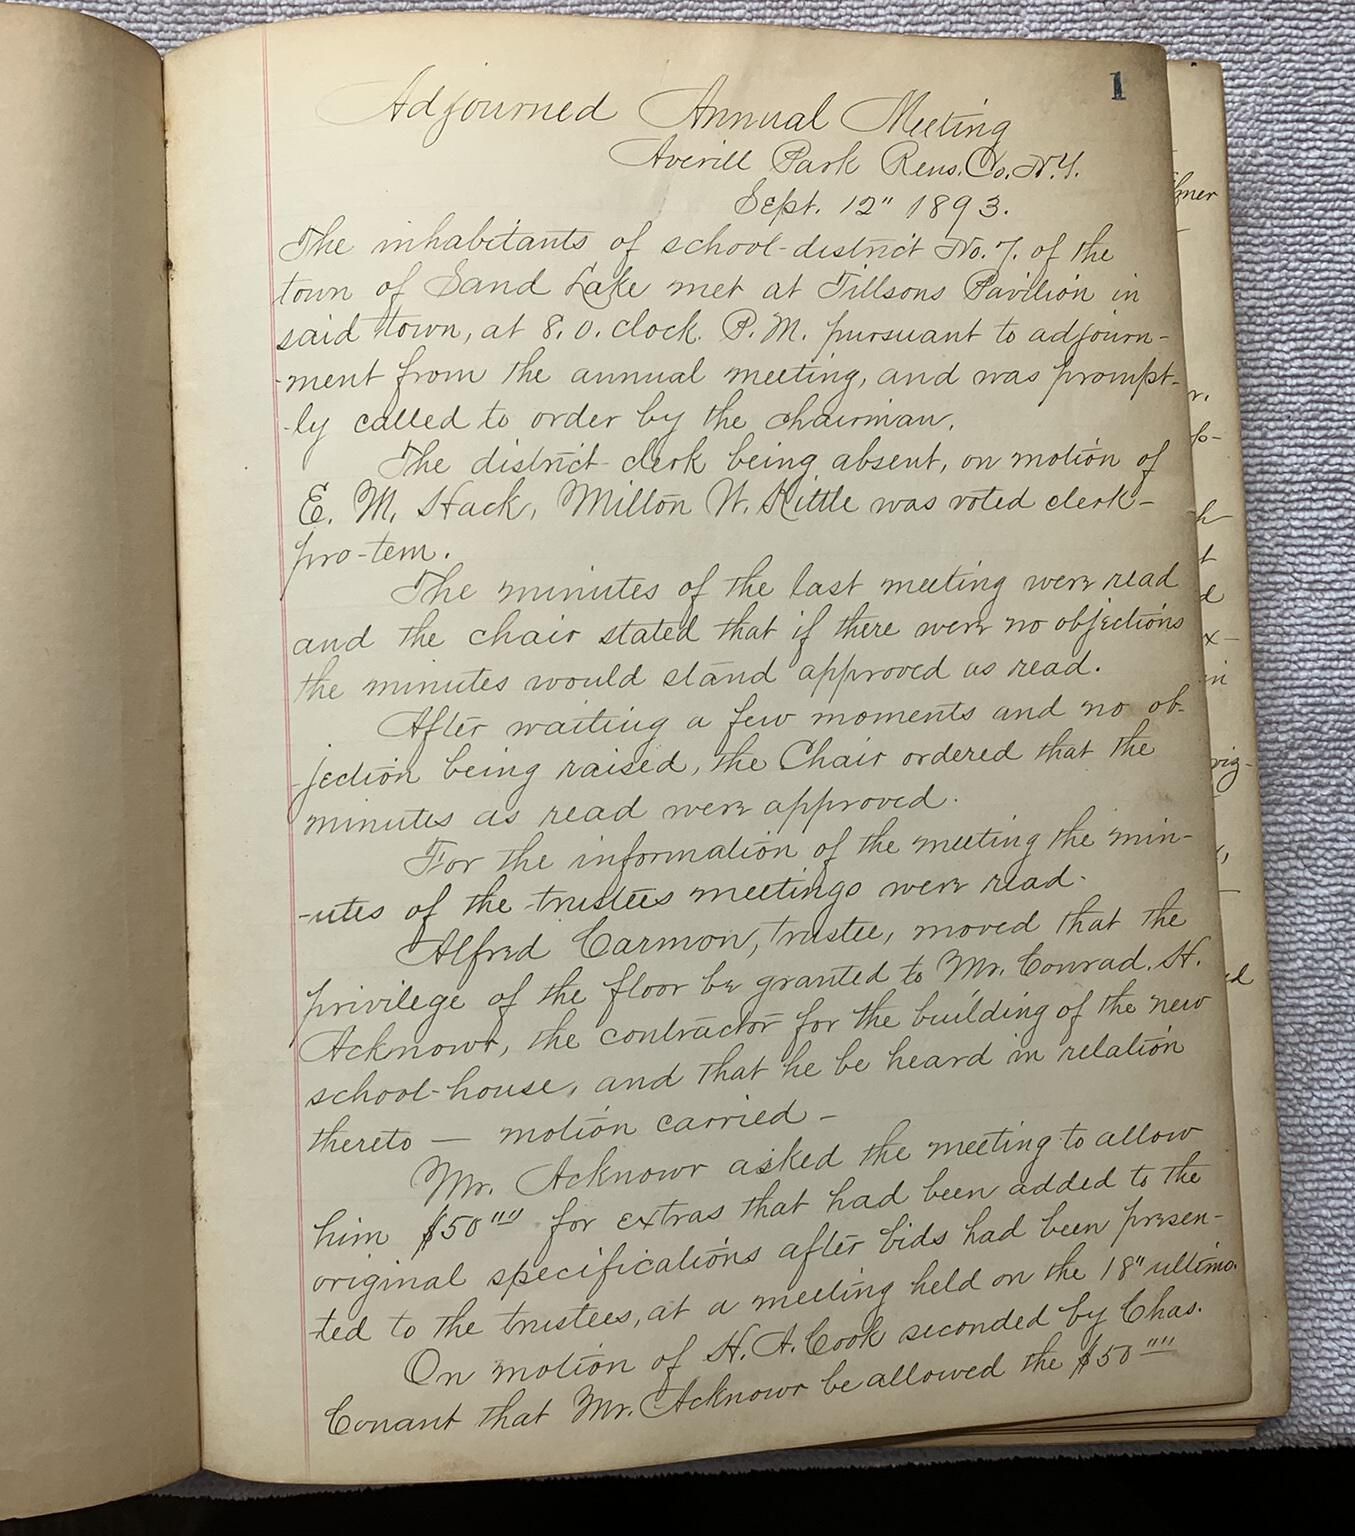 1
Adjourned Annual Meeting
Averill Park Rens. Co. N.Y.
Sept. 12" 1893.
The inhabitants of school-district No. 7. of the
town of Sand Lake met at Tillsons Pavilion in
said town, at 8. o. clock. P.M. pursuant to adjourn-
-ment from the annual meeting, and was prompt-
-ly called to order by the chairman.
The district-clerk being absent, on motion of
E. M. Hack, Milton W. Kittle was voted clerk-
pro-tem.
The minutes of the last meeting were read
and the chair stated that if there were no objections
the minutes would stand approved as read.
After waiting a few moments and no ob-
-jection being raised, the Chair ordered that the
minutes as read were approved.
For the information of the meeting the min-
-utes of the trustees meetings were read.
Alfred Carmon, trustee, moved that the
privilege of the floor be granted to Mr. Conrad. H.
Acknowr, the contractor for the building of the new
school-house, and that he be heard in relation
thereto — motion carried —
Mr. Acknowr asked the meeting to allow
him $50"" for extras that had been added to the
original specifications after bids had been presen-
ted to the trustees, at a meeting held on the 18" ultimo.
On motion of H. A. Cook seconded by Chas.
Conant that Mr. Acknowr be allowed the $50""